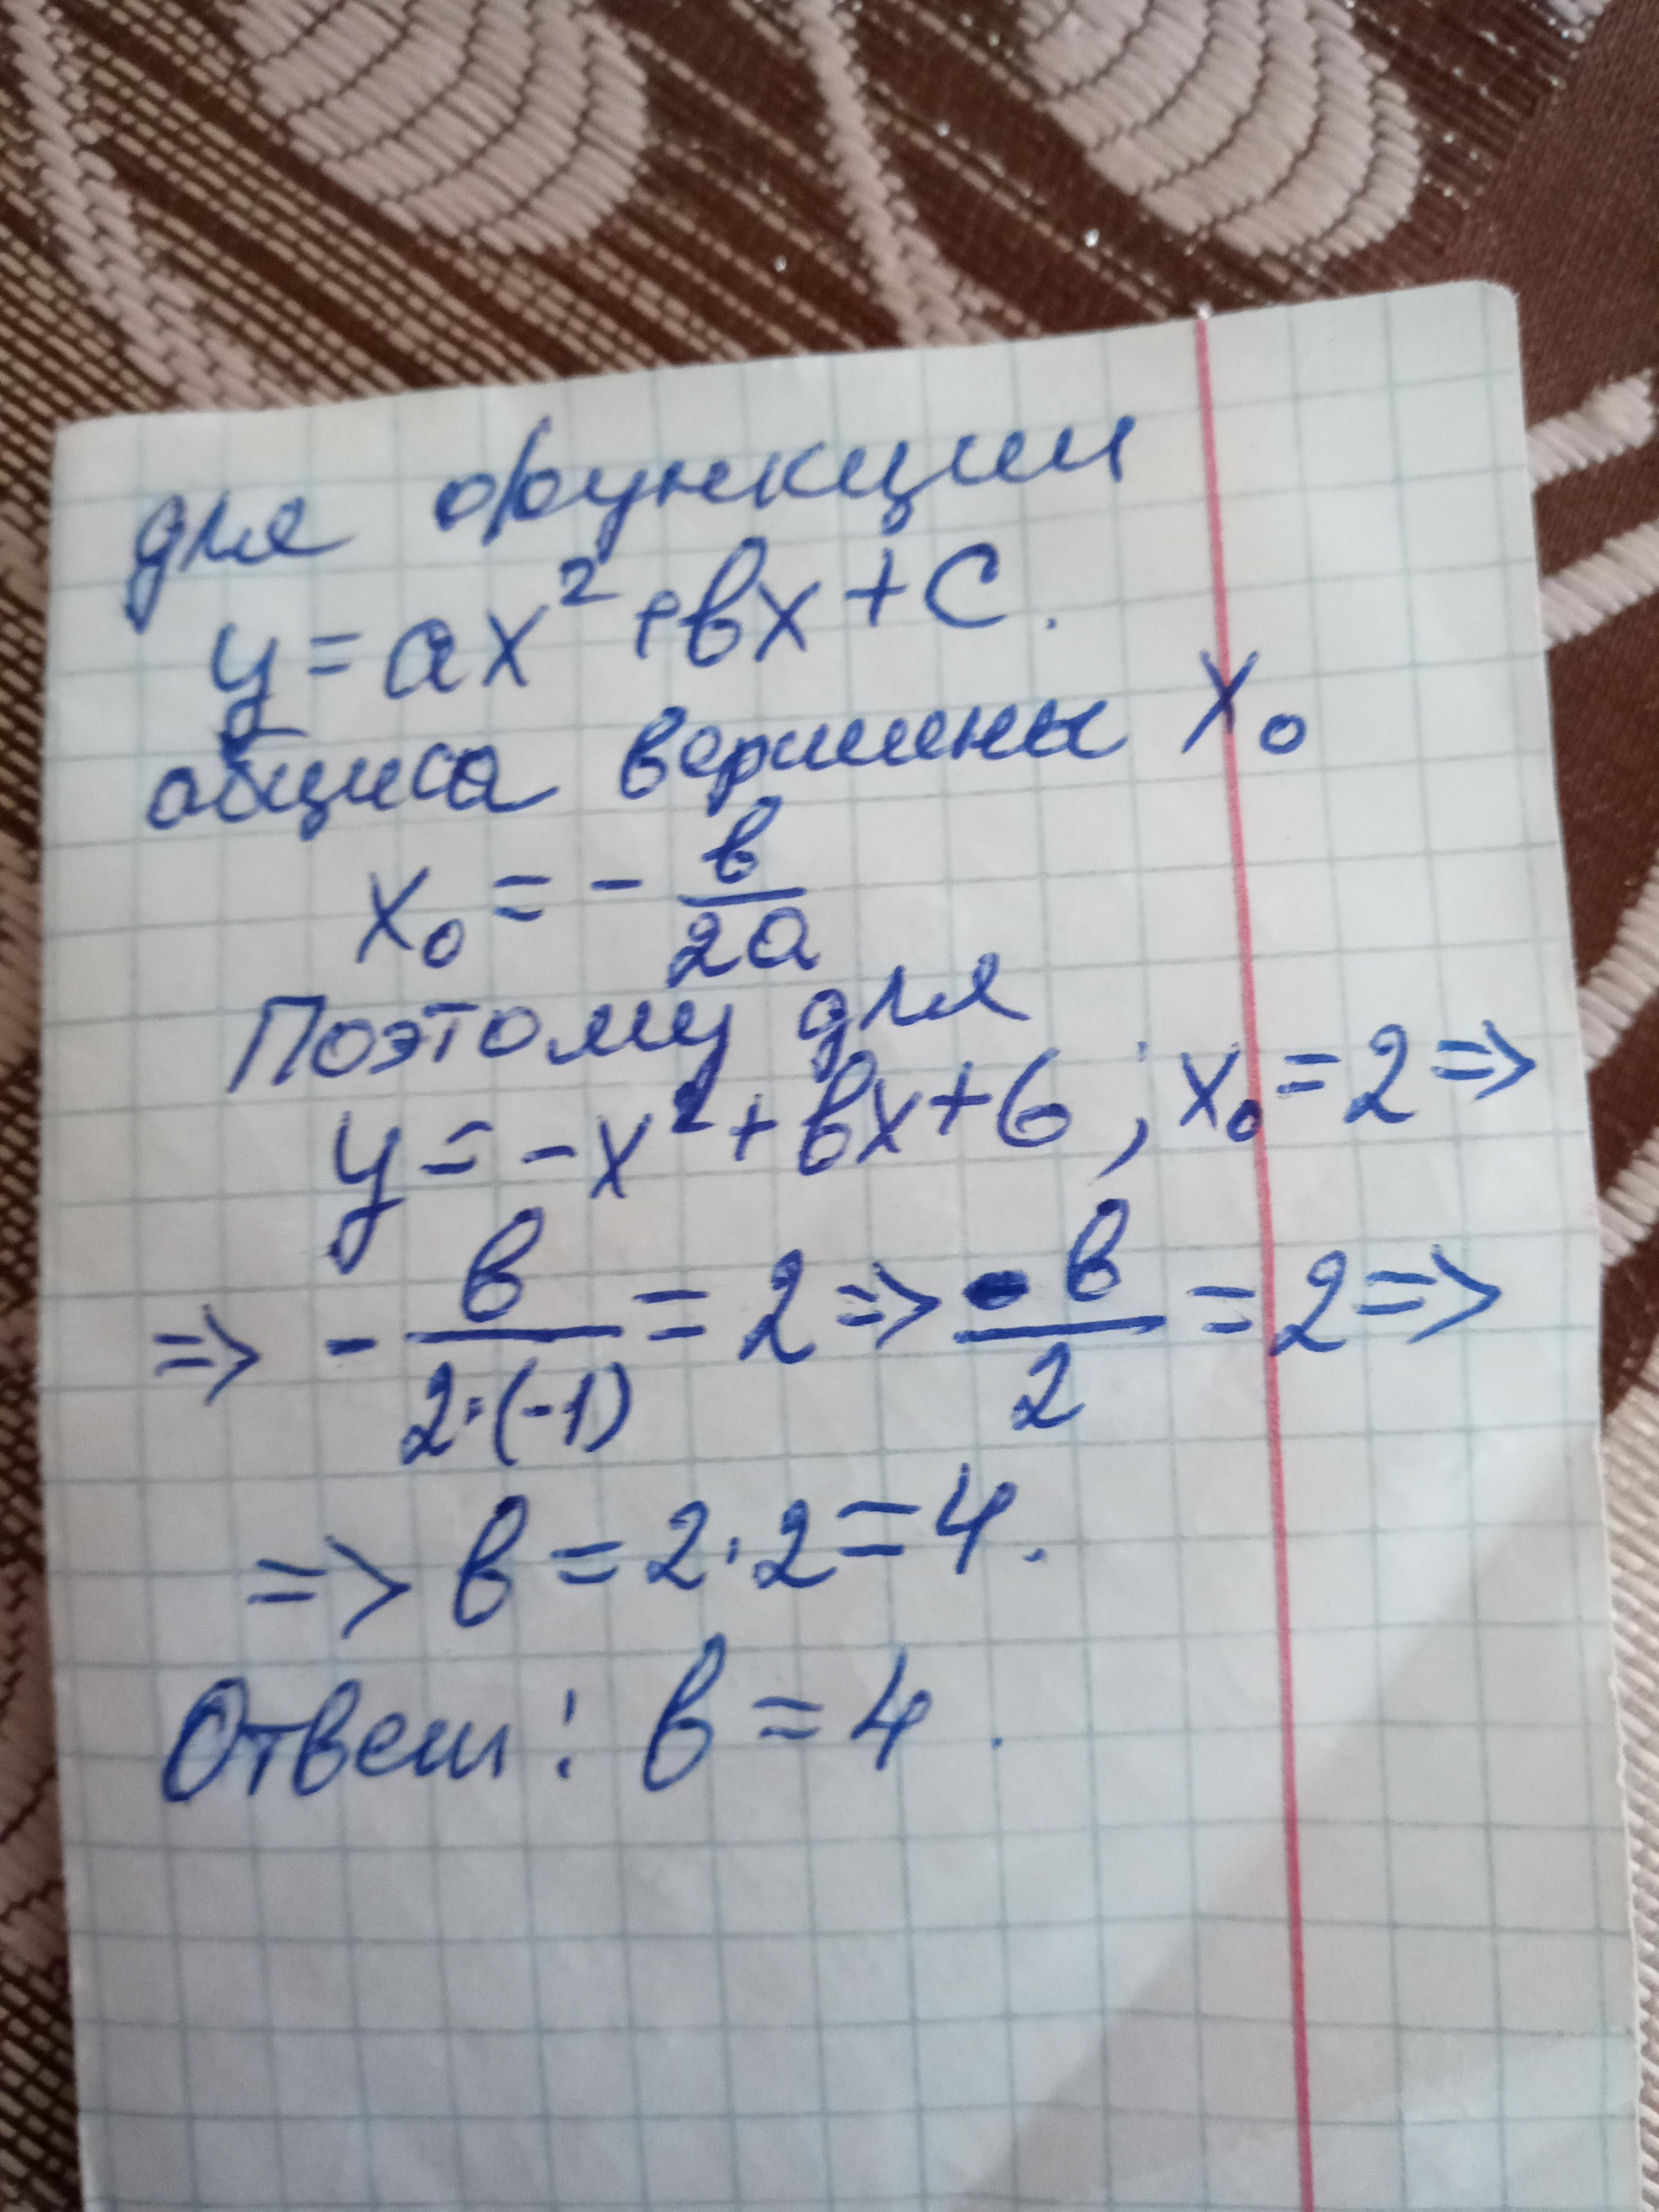 для функции
y = ax² + bx + c.
абциса вершины x₀
x₀ = - b/2a
Поэтому для
y = -x² + bx + 6; x₀ = 2 =>
=> - b/2·(-1) = 2 => b/2 = 2 =>
=> b = 2·2 = 4.
Ответ: b = 4.